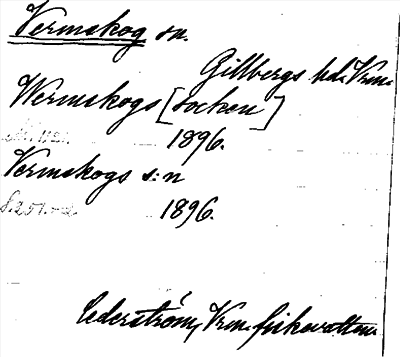 Vermskog sn.
Gillbergs hd. Vrm.
Wermskogs [socken]
1896.
Vermskogs s:n
s. 251.
1896.
Cederström, Vrm. fiskevatten.